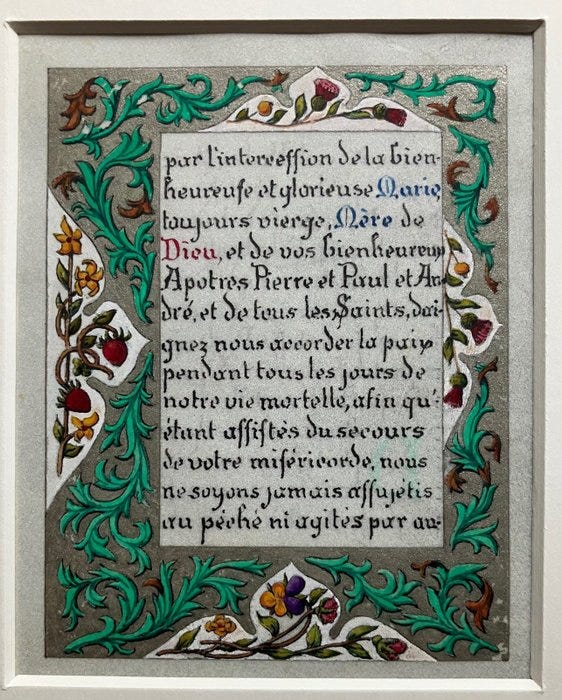 par l'intercession de la bien-
heureuse et glorieuse Marie,
toujours vierge, Mère de
Dieu, et de vos bienheureux
Apotres Pierre et Paul et An-
dré, et de tous les Saints, dai-
gnez nous accorder la paix
pendant tous les jours de
notre vie mortelle, afin qu'-
étant assistés du secours
de votre miséricorde, nous
ne soyons jamais assujétis
au péché ni agités par au-